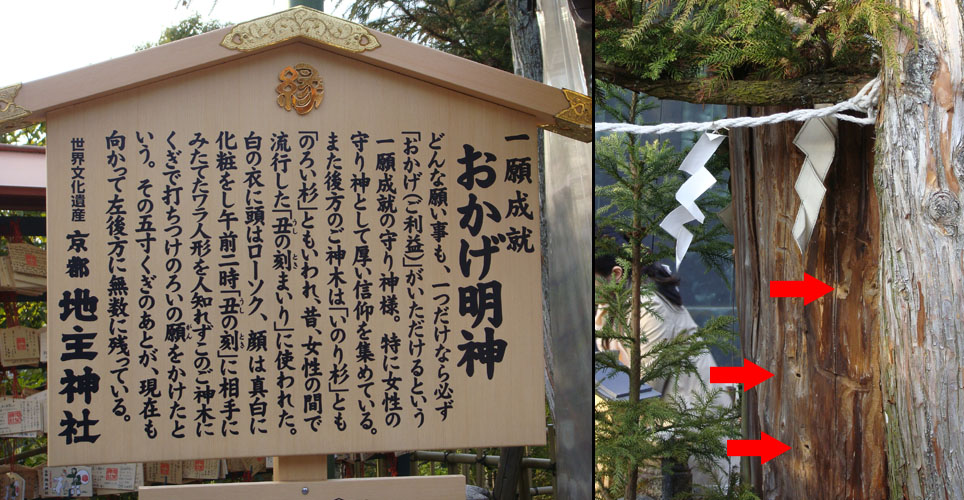 縁
一願成就
おかげ明神
どんな願い事も、一つだけなら必ず
「おかげ(ご利益)」がいただけるという
一願成就の守り神様。特に女性の
守り神として厚い信仰を集めている。
また後方のご神木は「いのり杉」とも
「のろい杉」ともいわれ、昔、女性の間で
流行した「丑の刻まいり」に使われた。
うし とき
白の衣に頭はローソク、顔は真白に
化粧をし午前二時「丑の刻」に相手に
うし とき
みたてたワラ人形を人知れずこのご神木に
くぎで打ちつけのろいの願をかけたと
がん
いう。その五寸くぎのあとが、現在も
向かって左後方に無数に残っている。
世界文化遺産 京都 地主神社